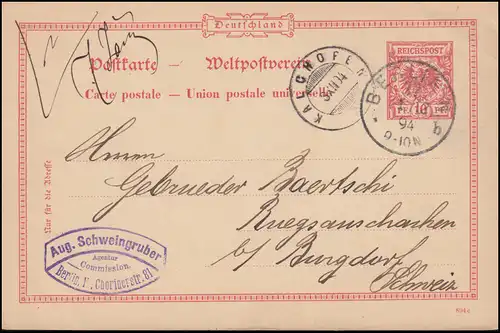 Deutschland
Postkarte — Weltpostverein
Carte postale — Union postale universelle
REICHSPOST
10 PF
KALCHOFEN
94
9-10N
Nur für die Adresse
Herren
Gebrueder Baertschi
Ruegsauschachen
b/ Burgdorf
Schweiz
Aug. Schweingruber
Agentur
Commission.
Berlin, N., Chorinerstr. 81